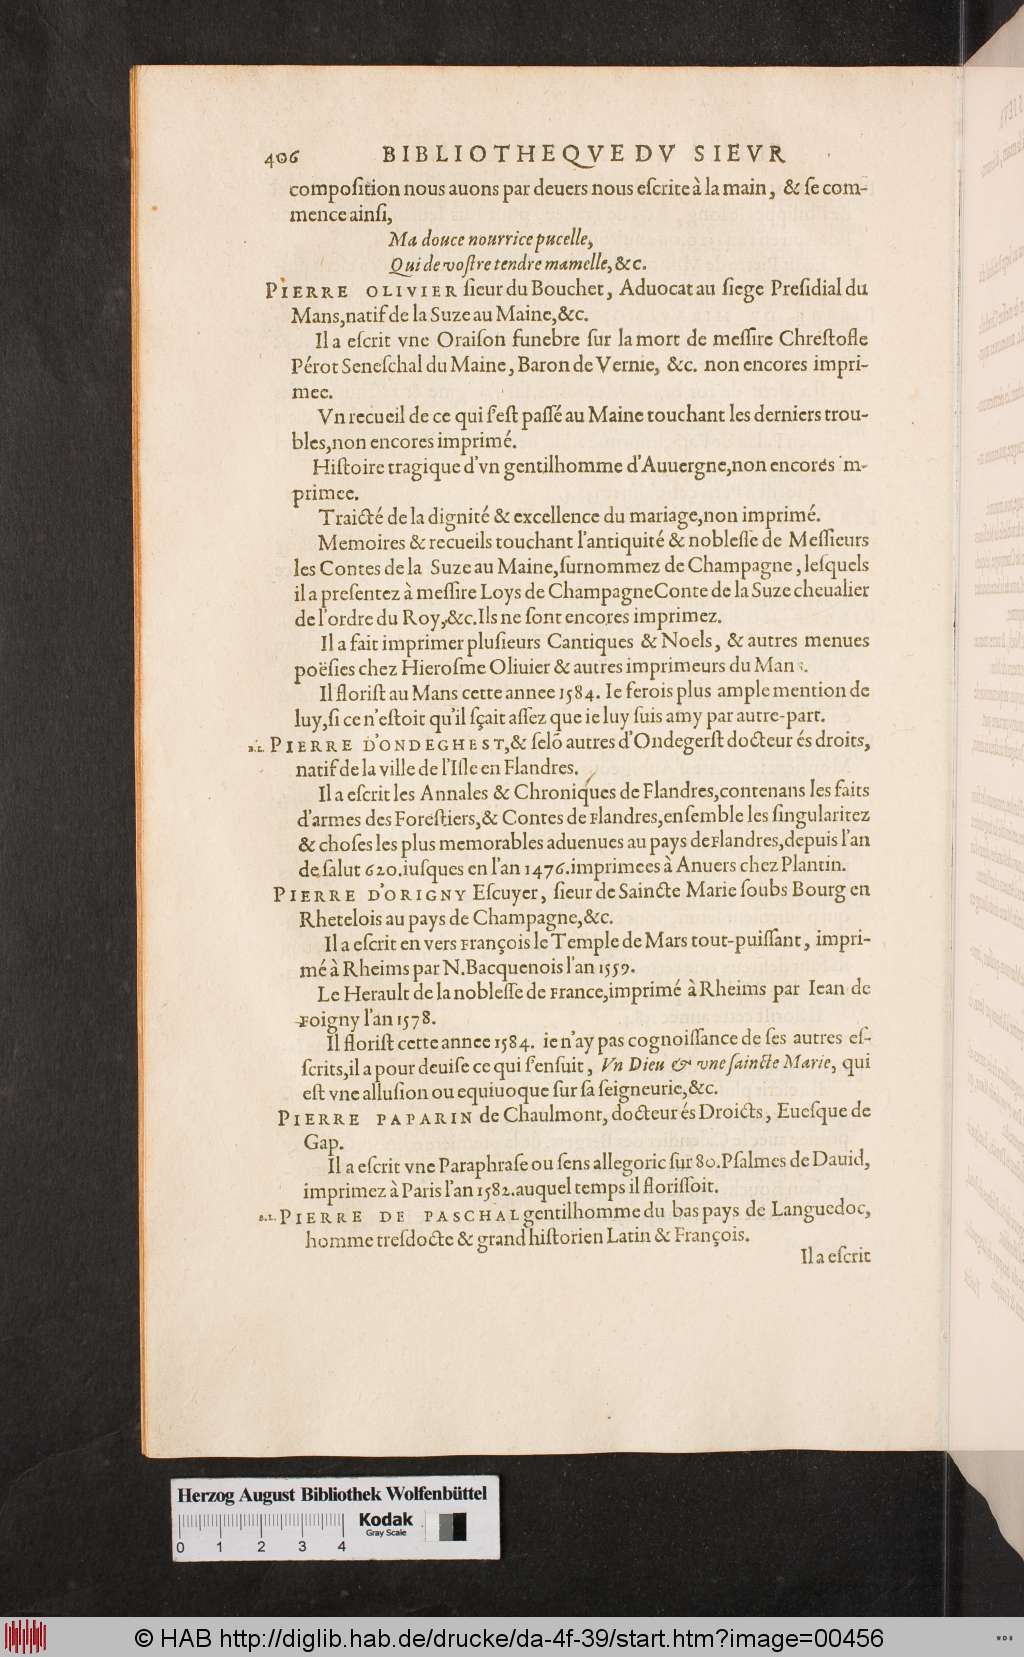 406 BIBLIOTHEQVE DV SIEVR
compoſition nous auons par deuers nous eſcrite à la main, & ſe com-
mence ainſi,
Ma douce nourrice pucelle,
Qui de voſtre tendre mamelle, &c.
PIERRE OLIVIER ſieur du Bouchet, Aduocat au ſiege Preſidial du
Mans, natif de la Suze au Maine, &c.
Il a eſcrit vne Oraiſon funebre ſur la mort de meſſire Chreſtofle
Pérot Seneſchal du Maine, Baron de Vernie, &c. non encores impri-
mee.
Vn recueil de ce qui ſ'eſt paſſé au Maine touchant les derniers trou-
bles, non encores imprimé.
Hiſtoire tragique d'vn gentilhomme d'Auuergne, non encores im-
primee.
Traicté de la dignité & excellence du mariage, non imprimé.
Memoires & recueils touchant l'antiquité & nobleſſe de Meſſieurs
les Contes de la Suze au Maine, ſurnommez de Champagne, leſquels
il a preſentez à meſſire Loys de Champagne Conte de la Suze cheualier
de l'ordre du Roy, &c. Ils ne ſont encores imprimez.
Il a fait imprimer pluſieurs Cantiques & Noels, & autres menues
poëſies chez Hieroſme Oliuier & autres imprimeurs du Mans.
Il floriſt au Mans cette annee 1584. Ie ferois plus ample mention de
luy, ſi ce n'eſtoit qu'il ſçait aſſez que ie luy ſuis amy par autre-part.
B.L. PIERRE D'ONDEGHEST, & ſelō autres d'Ondegerſt docteur és droits,
natif de la ville de l'Iſle en Flandres.
Il a eſcrit les Annales & Chroniques de Flandres, contenans les faits
d'armes des Foreſtiers, & Contes de Flandres, enſemble les ſingularitez
& choſes les plus memorables aduenues au pays de Flandres, depuis l'an
de ſalut 620. iuſques en l'an 1476. imprimees à Anuers chez Plantin.
PIERRE D'ORIGNY Eſcuyer, ſieur de Saincte Marie ſoubs Bourg en
Rhetelois au pays de Champagne, &c.
Il a eſcrit en vers François le Temple de Mars tout-puiſſant, impri-
mé à Rheims par N. Bacquenois l'an 1559.
Le Herault de la nobleſſe de France, imprimé à Rheims par Iean de
Foigny l'an 1578.
Il floriſt cette annee 1584. ie n'ay pas cognoiſſance de ſes autres eſ-
ſcrits, il a pour deuiſe ce qui ſ'enſuit, Vn Dieu & vne ſaincte Marie, qui
eſt vne alluſion ou equiuoque ſur ſa ſeigneurie, &c.
PIERRE PAPARIN de Chaulmont, docteur és Droicts, Eueſque de
Gap.
Il a eſcrit vne Paraphraſe ou ſens allegoric ſur 80. Pſalmes de Dauid,
imprimez à Paris l'an 1582. auquel temps il floriſſoit.
B.L. PIERRE DE PASCHAL gentilhomme du bas pays de Languedoc,
homme treſdocte & grand hiſtorien Latin & François.
Il a eſcrit
Herzog August Bibliothek Wolfenbüttel
Kodak
Gray Scale
0 1 2 3 4
© HAB http://diglib.hab.de/drucke/da-4f-39/start.htm?image=00456